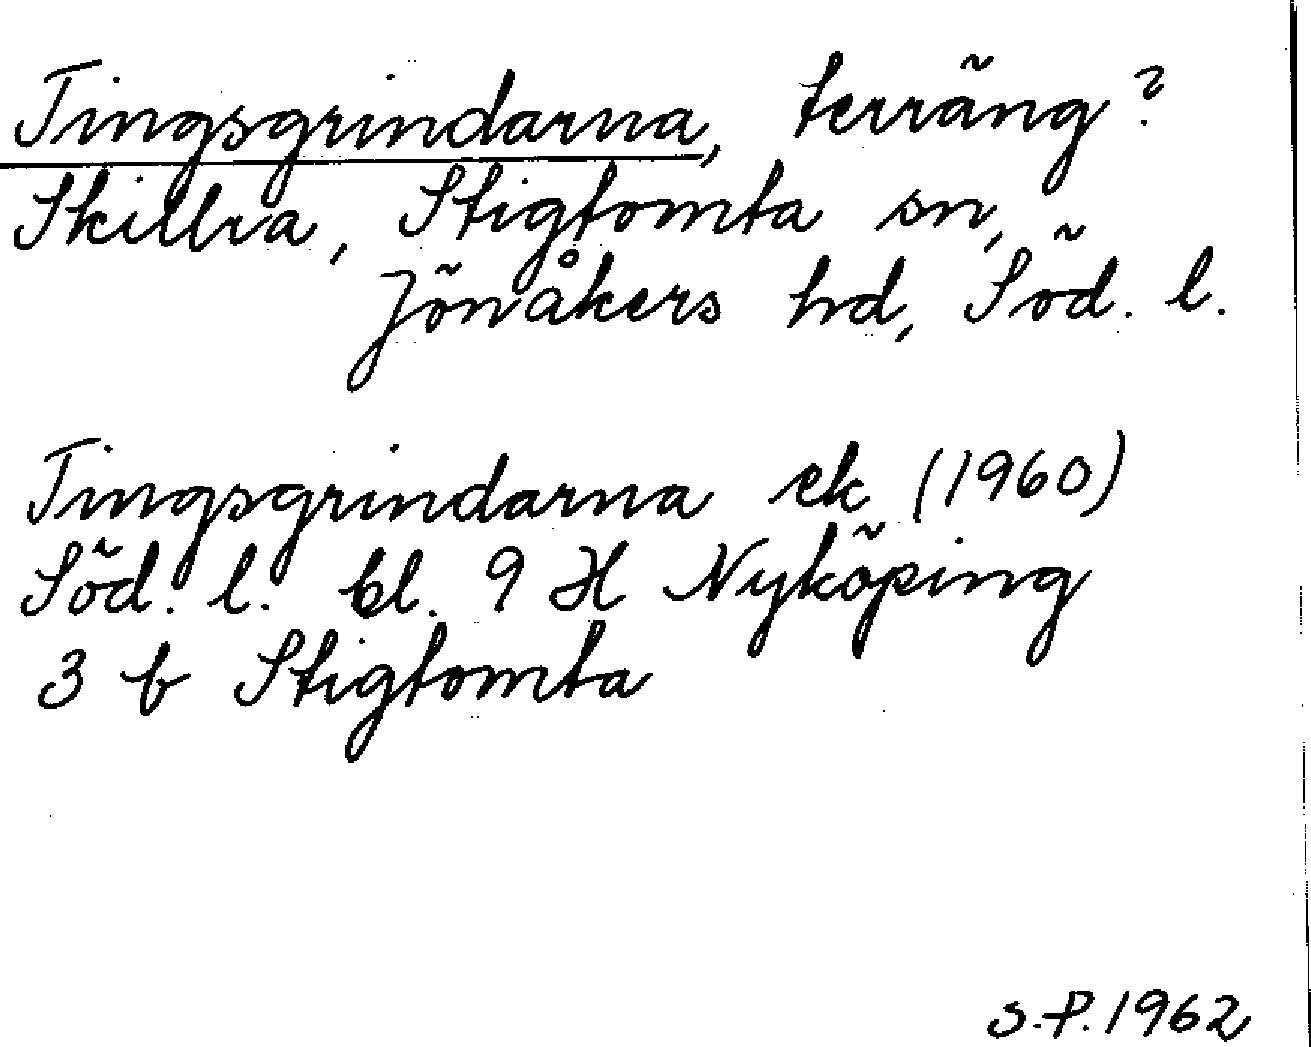 Tingsgrindarna, terräng?
Skillra, Stigtomta sn,
Jönåkers hd, Söd. l.
Tingsgrindarna ek (1960)
Söd. l. bl. 9 H Nyköping
3 b Stigtomta
S.P. 1962